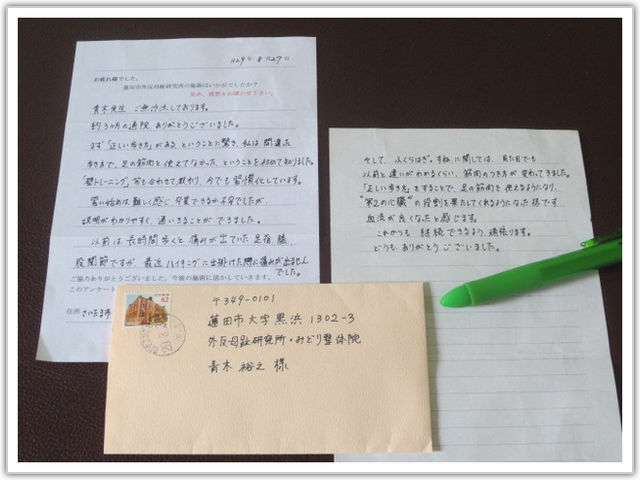 H29年 8月27日
お疲れ様でした。
蓮田市外反母趾研究所の施術はいかがでしたか？
是非、感想をお聞かせ下さい。
青木先生 ご無沙汰しております。
約3ヶ月の通院、ありがとうございました。
まず「正しい歩き方」がある ということに驚き、私は 間違った
歩き方で、足の筋肉を 使えてなかった、ということを初めて知りました。
「壁トレーニング」等も合わせて教わり、今でも 習慣化しています。
習い始めは、難しく感じ、卒業できるか不安でしたが、
説明がわかりやすく、通いきることが できました。
以前は、長時間歩くと 痛みが出ていた 足首、膝
股関節ですが、最近 ハイキングに出掛けた際に痛みが出ません
でした。
ご協力ありがとうございました。今後の施術に活かしていきます。
このアンケー
住所 さいたま市
そして、ふくらはぎ、すね に関しては、見た目でも
以前と違いがわかるくらい、筋肉のつき方が 変わってきました。
「正しい歩き方」をすることで、足の筋肉を 使えるようになり、
“第2の心臓”の 役割を果たしてくれるようになった様です。
血流が 良くなったと感じます。
これからも 継続できるよう 頑張ります。
どうも ありがとう ございました。
日本郵便
82
〒349-0101
蓮田市大字黒浜1302-3
外反母趾研究所・みどり整体院
青木 裕之 様